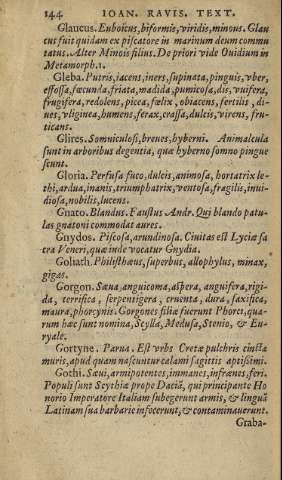 144 IOAN. RAVIS. TEXT.
Glaucus. Euboicus, biformis, viridis, minous. Glau
cus fuit quidam ex piscatore in marinum deum commu
tatus. Alter Minois filius. De priori vide Ouidium in
Metamorph. 1.
Gleba. Putris, iacens, iners, supinata, pinguis, vber,
effossa, fœcunda, friata, madida, pumicosa, dis, vuifera,
frugifera, redolens, picea, fœlix, obiacens, fertilis, di-
ues, vliginea, humens, ferax, crassa, dulcis, virens, fru-
ticans.
Glires. Somniculosi, breues, hyberni. Animalcula
sunt in arboribus degentia, quæ hyberno somno pingue
scunt.
Gloria. Perfusa fuco, dulcis, animosa, hortatrix le-
thi, ardua, inanis, triumphatrix, ventosa, fragilis, inui-
diosa, nobilis, lucens.
Gnato. Blandus. Faustus Andr. Qui blando patu-
las gnatoni commodat aures.
Gnydos. Piscosa, arundinosa. Ciuitas est Lyciæ sa
cra Veneri, quæ inde vocatur Gnydia.
Goliath. Philisthæus, superbus, allophylus, minax,
gigas.
Gorgon. Sæua, anguicoma, aspera, anguifera, rigi-
da, terrifica, serpentigera, cruenta, dura, saxifica,
maura, phorcynis. Gorgones filiæ fuerunt Phorci, qua-
rum hæc sunt nomina, Scylla, Medusa, Stenio, & Eu-
ryale.
Gortyne. Parua. Est vrbs Cretæ pulchris cincta
muris, apud quam nascuntur calami sagittis aptissimi.
Gothi. Sæui, armipotentes, immanes, infrænes, feri.
Populi sunt Scythiæ prope Daciã, qui principante Ho
norio Imperatore Italiam subegerunt armis, & linguã
Latinam sua barbarie infecerunt, & contaminauerunt.
Graba-